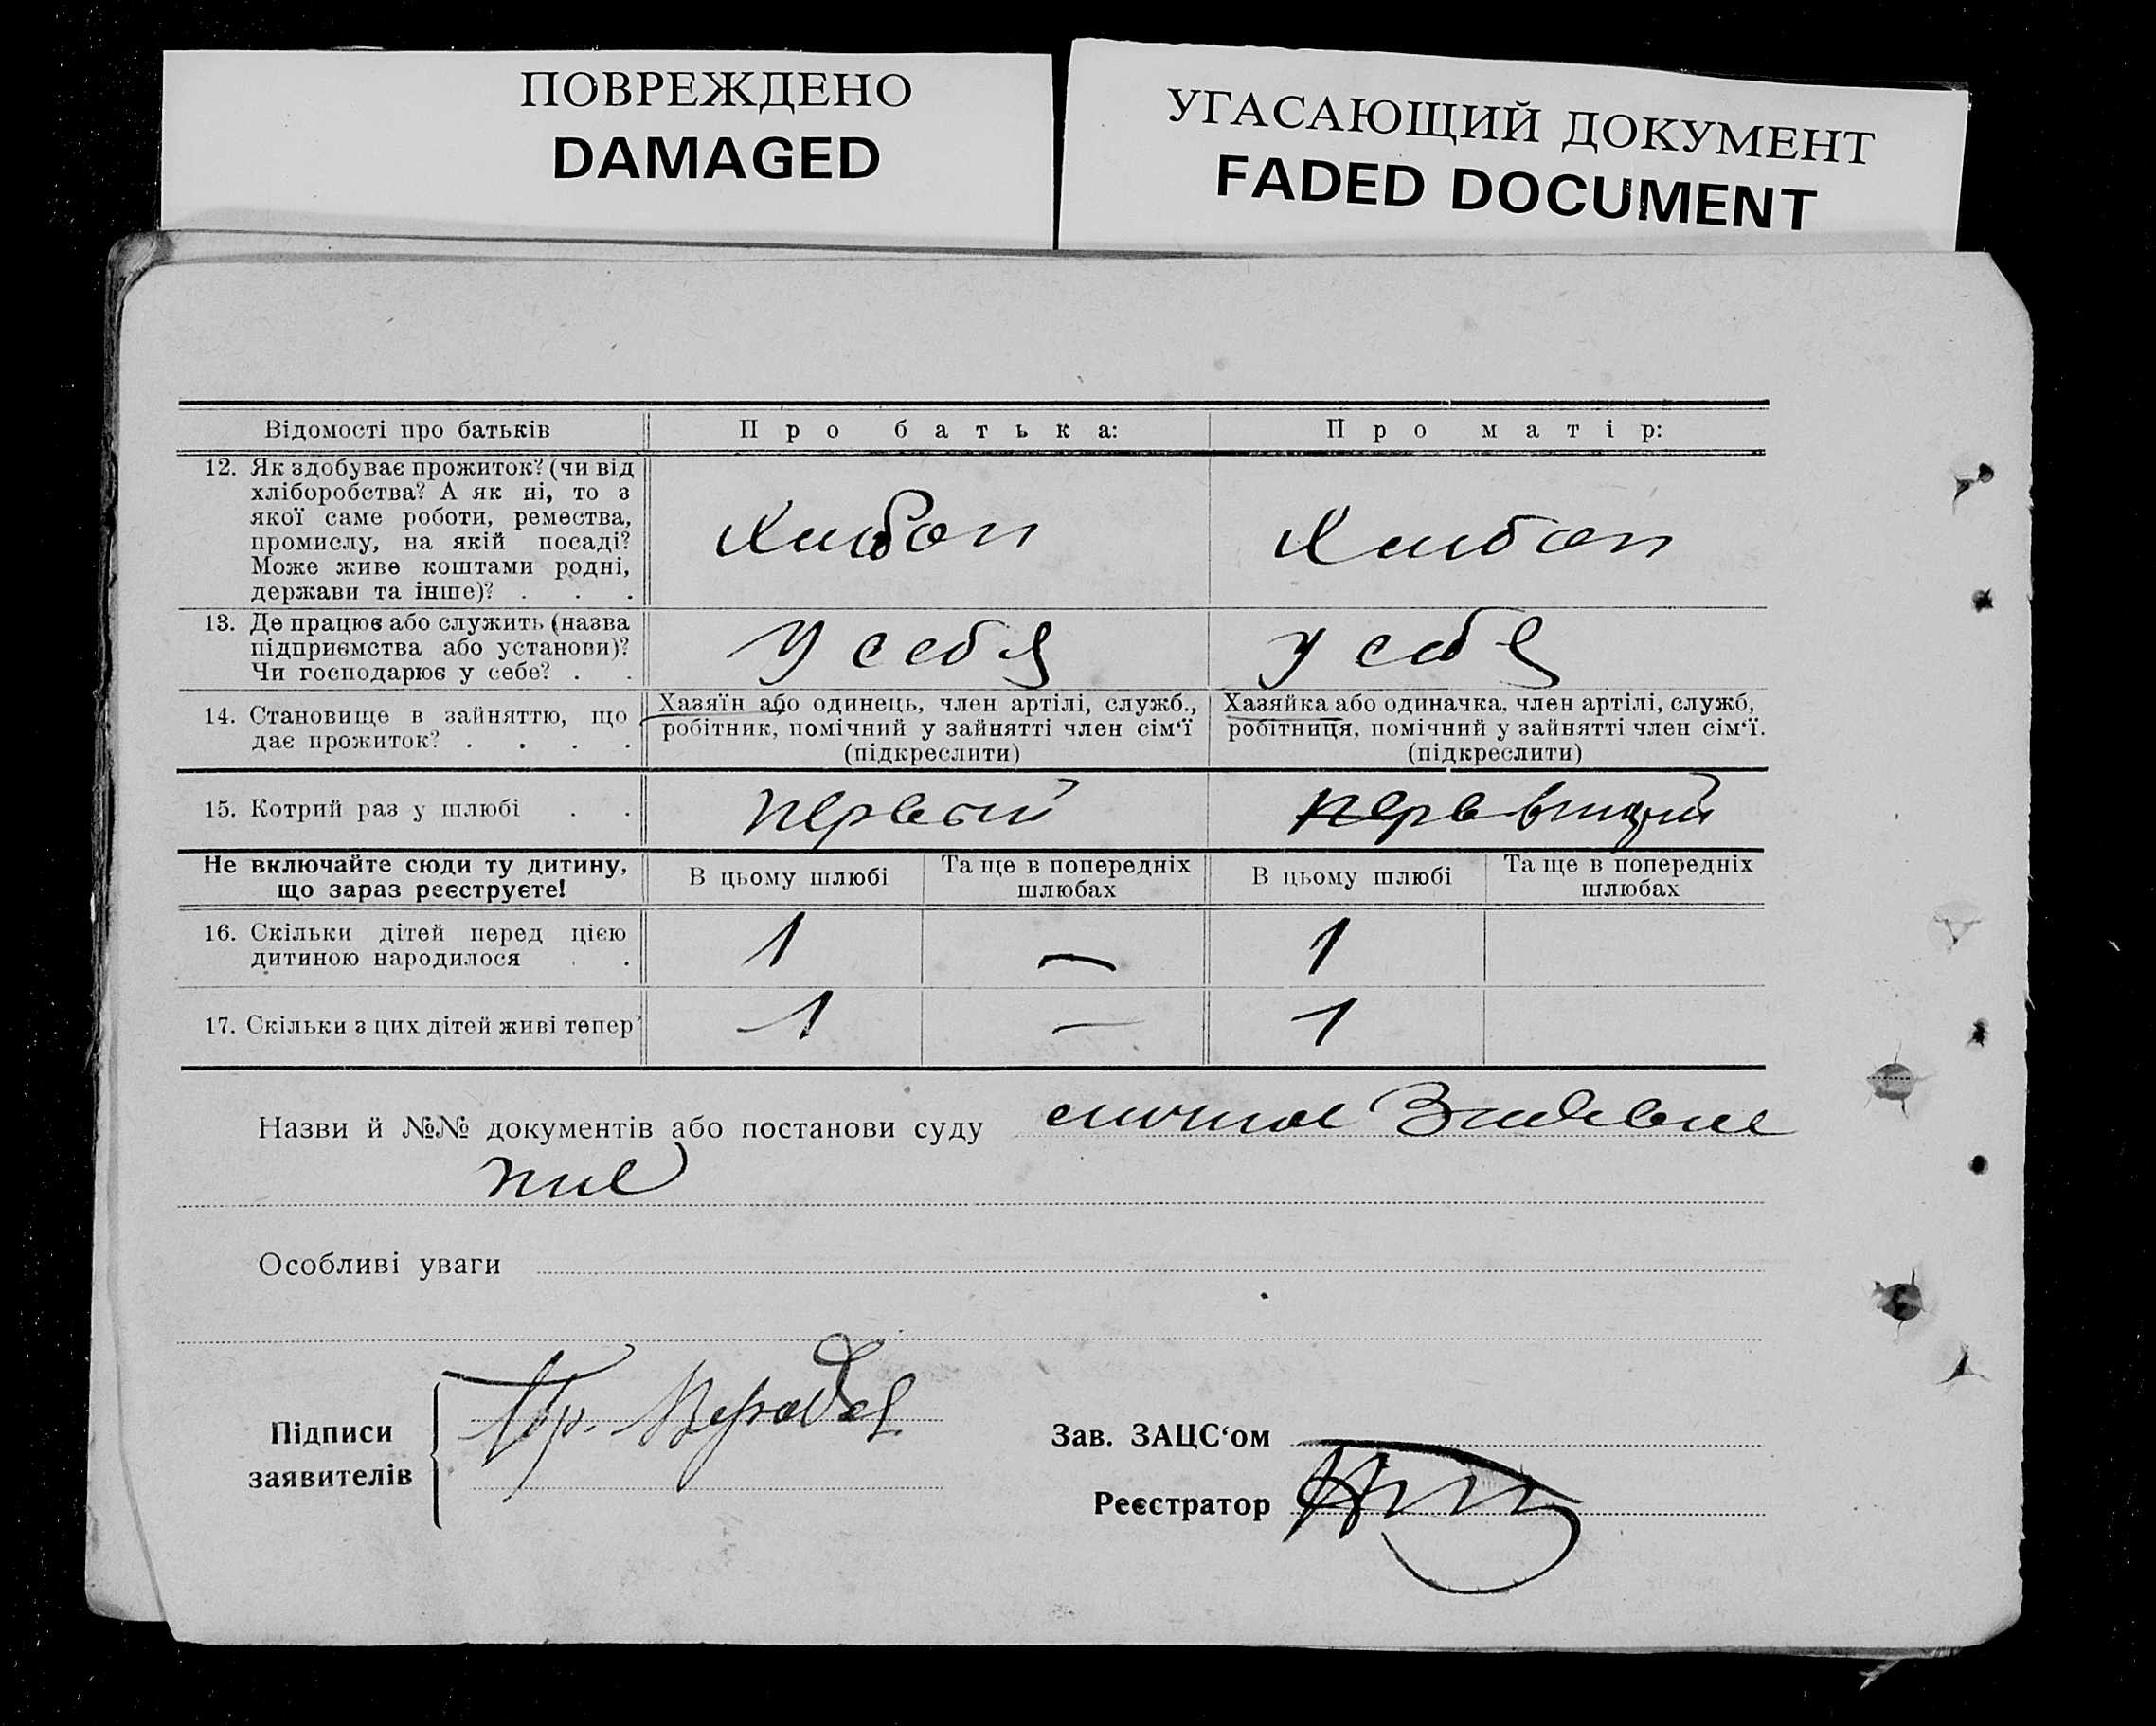 ПОВРЕЖДЕНО
DAMAGED
УГАСАЮЩИЙ ДОКУМЕНТ
FADED DOCUMENT
Відомості про батьків
Про батька:
Про матір:
12. Як здобуває прожиток? (чи від
хліборобства? А як ні, то з
якої саме роботи, ремества,
промислу, на якій посаді?
Може живе коштами родні,
держави та інше)? . . .
Хлибоп
Хлибоп
13. Де працює або служить (назва
підприємства або установи)?
Чи господарює у себе? . .
У себя
у себя
14. Становище в зайняттю, що
дає прожиток? . . . .
Хазяїн або одинець, член артілі, служб.,
робітник, помічний у зайнятті член сім‘ї
(підкреслити)
Хазяйка або одиначка, член артілі, служб,
робітниця, помічний у зайнятті член сім‘ї.
(підкреслити)
15. Котрий раз у шлюбі . .
первый
Не включайте сюди ту дитину,
що зараз реєструєте!
В цьому шлюбі
Та ще в попередніх
шлюбах
В цьому шлюбі
Та ще в попередніх
шлюбах
16. Скільки дітей перед цією
дитиною народилося . .
1
—
1
17. Скільки з цих дітей живі тепер
1
—
1
Назви й №№ документів або постанови суду
Особливі уваги
Підписи
заявителів
Зав. ЗАЦС‘ом
Реєстратор